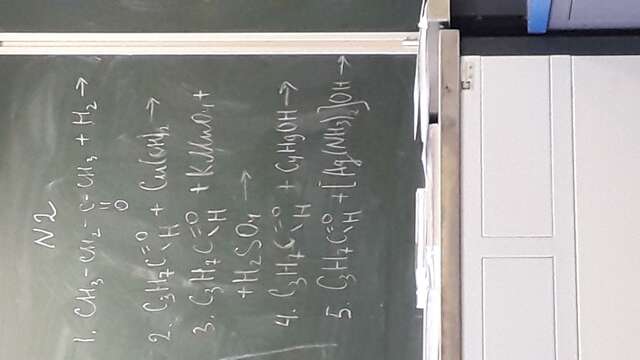 N2
1. CH3-CH2-C-CH3 + H2 →
=
O
2. C3H7C=O\H + Cu(OH)2 →
3. C3H7C=O\H + KMnO4 +
+ H2SO4 →
4. C3H7C=O\H + C4H9OH →
5. C3H7C=O\H + [Ag(NH3)2]OH →